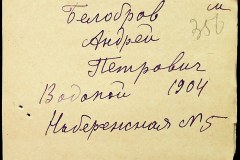 Белобров
Андрей
Петрович
Водопой 1904
Набережная №5
356